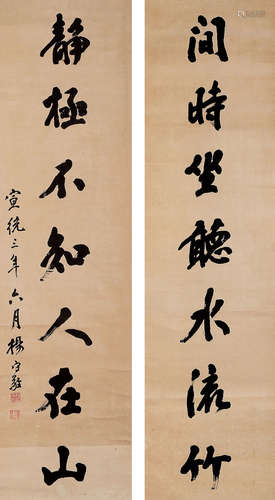 间時坐聽水流竹
靜極不知人在山
宣統三年六月楊守敬